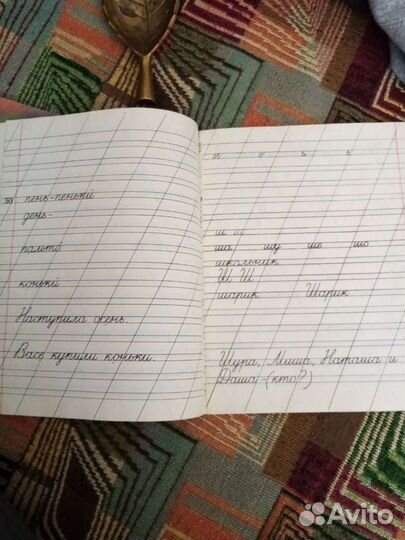 50 пень-пеньки́
день-
пальто́
коньки́
Наступила осень.
Васе купили коньки.
ш
ша шу ше шо
школьник
Ш Ш
шарик Шарик
Шура, Миша, Наташа и
Даша-(кто?)
Avito